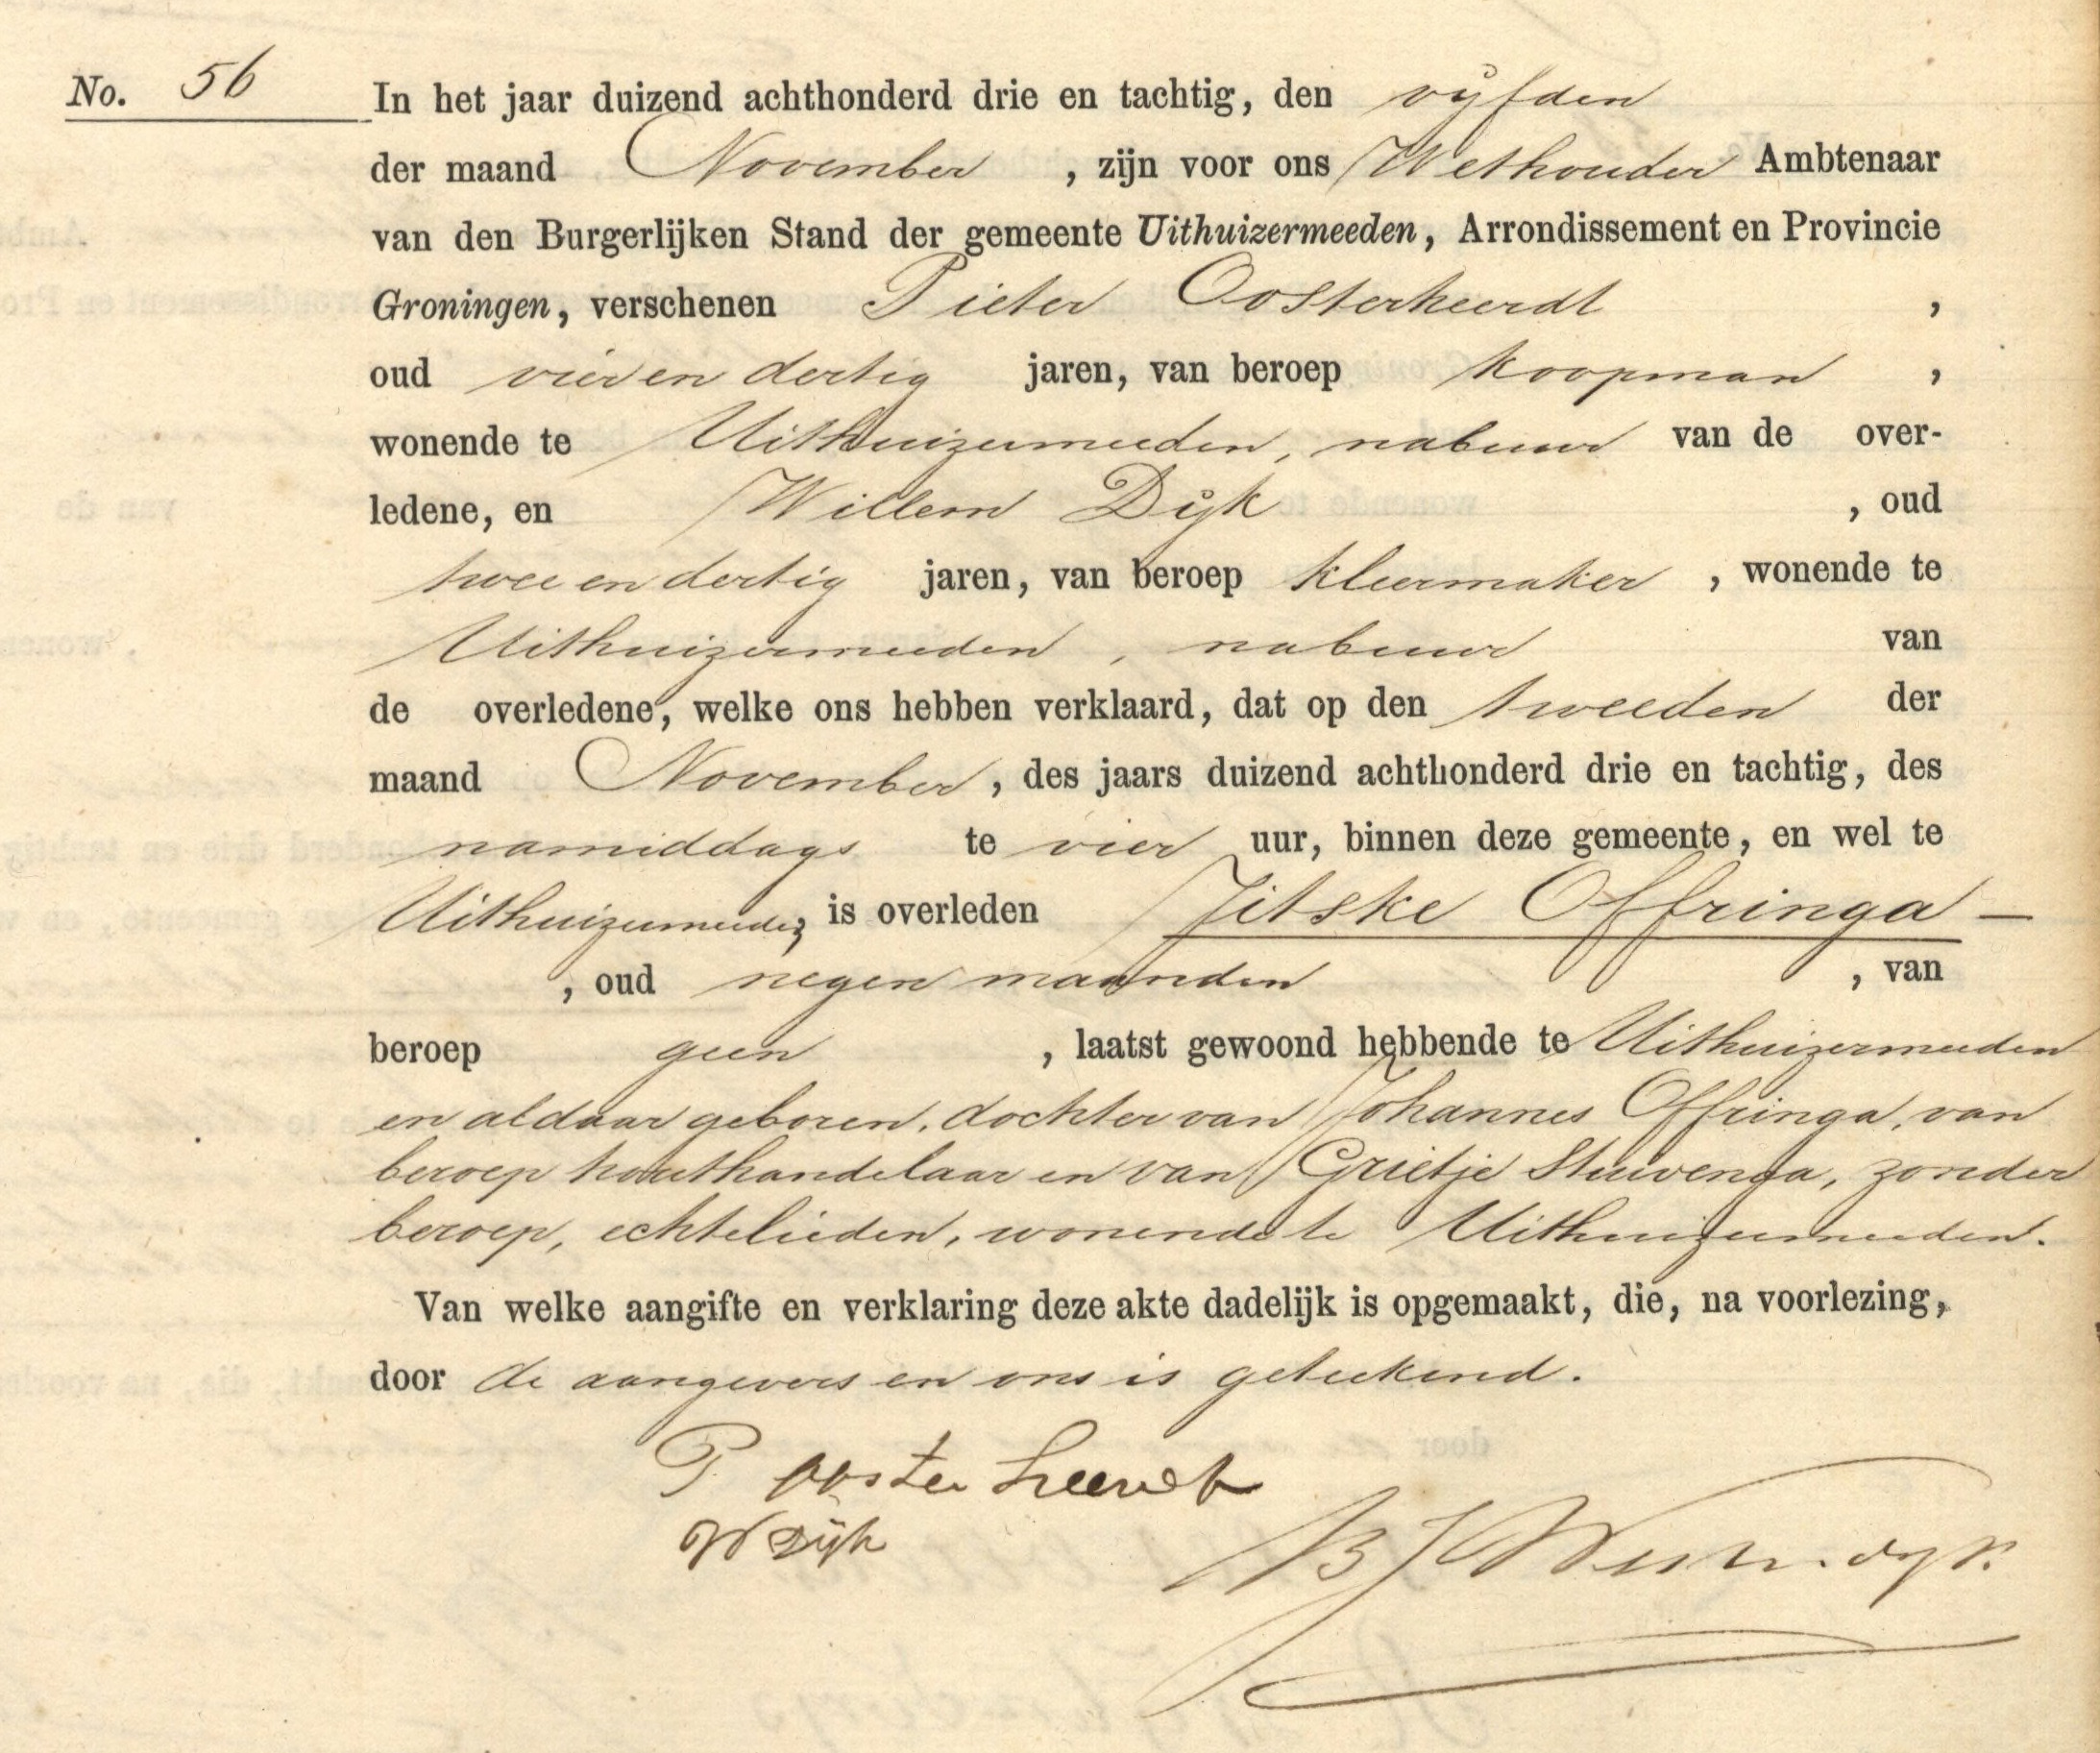 No. 56 In het jaar duizend achthonderd drie en tachtig, den vijfden
der maand November, zijn voor ons Wethouder Ambtenaar
van den Burgerlijken Stand der gemeente Uithuizermeeden, Arrondissement en Provincie
Groningen, verschenen Pieter Oosterheerdt,
oud vier en dertig jaren, van beroep koopman,
wonende te Uithuizermeeden, nabuur van de over-
ledene, en Willem Dijk, oud
twee en dertig jaren, van beroep kleermaker, wonende te
Uithuizermeeden, nabuur van
de overledene, welke ons hebben verklaard, dat op den tweeden der
maand November, des jaars duizend achthonderd drie en tachtig, des
namiddags te vier uur, binnen deze gemeente, en wel te
Uithuizermeeden, is overleden Jitske Offringa —
, oud negen maanden, van
beroep geen, laatst gewoond hebbende te Uithuizermeeden
en aldaar geboren, dochter van Johannes Offringa, van
beroep houthandelaar en van Grietje Stuivenga, zonder
beroep, echtelieden, wonende te Uithuizermeeden.
Van welke aangifte en verklaring deze akte dadelijk is opgemaakt, die, na voorlezing,
door de aangevers en ons is geteekend.
P Oosterheerdt
W Dijk